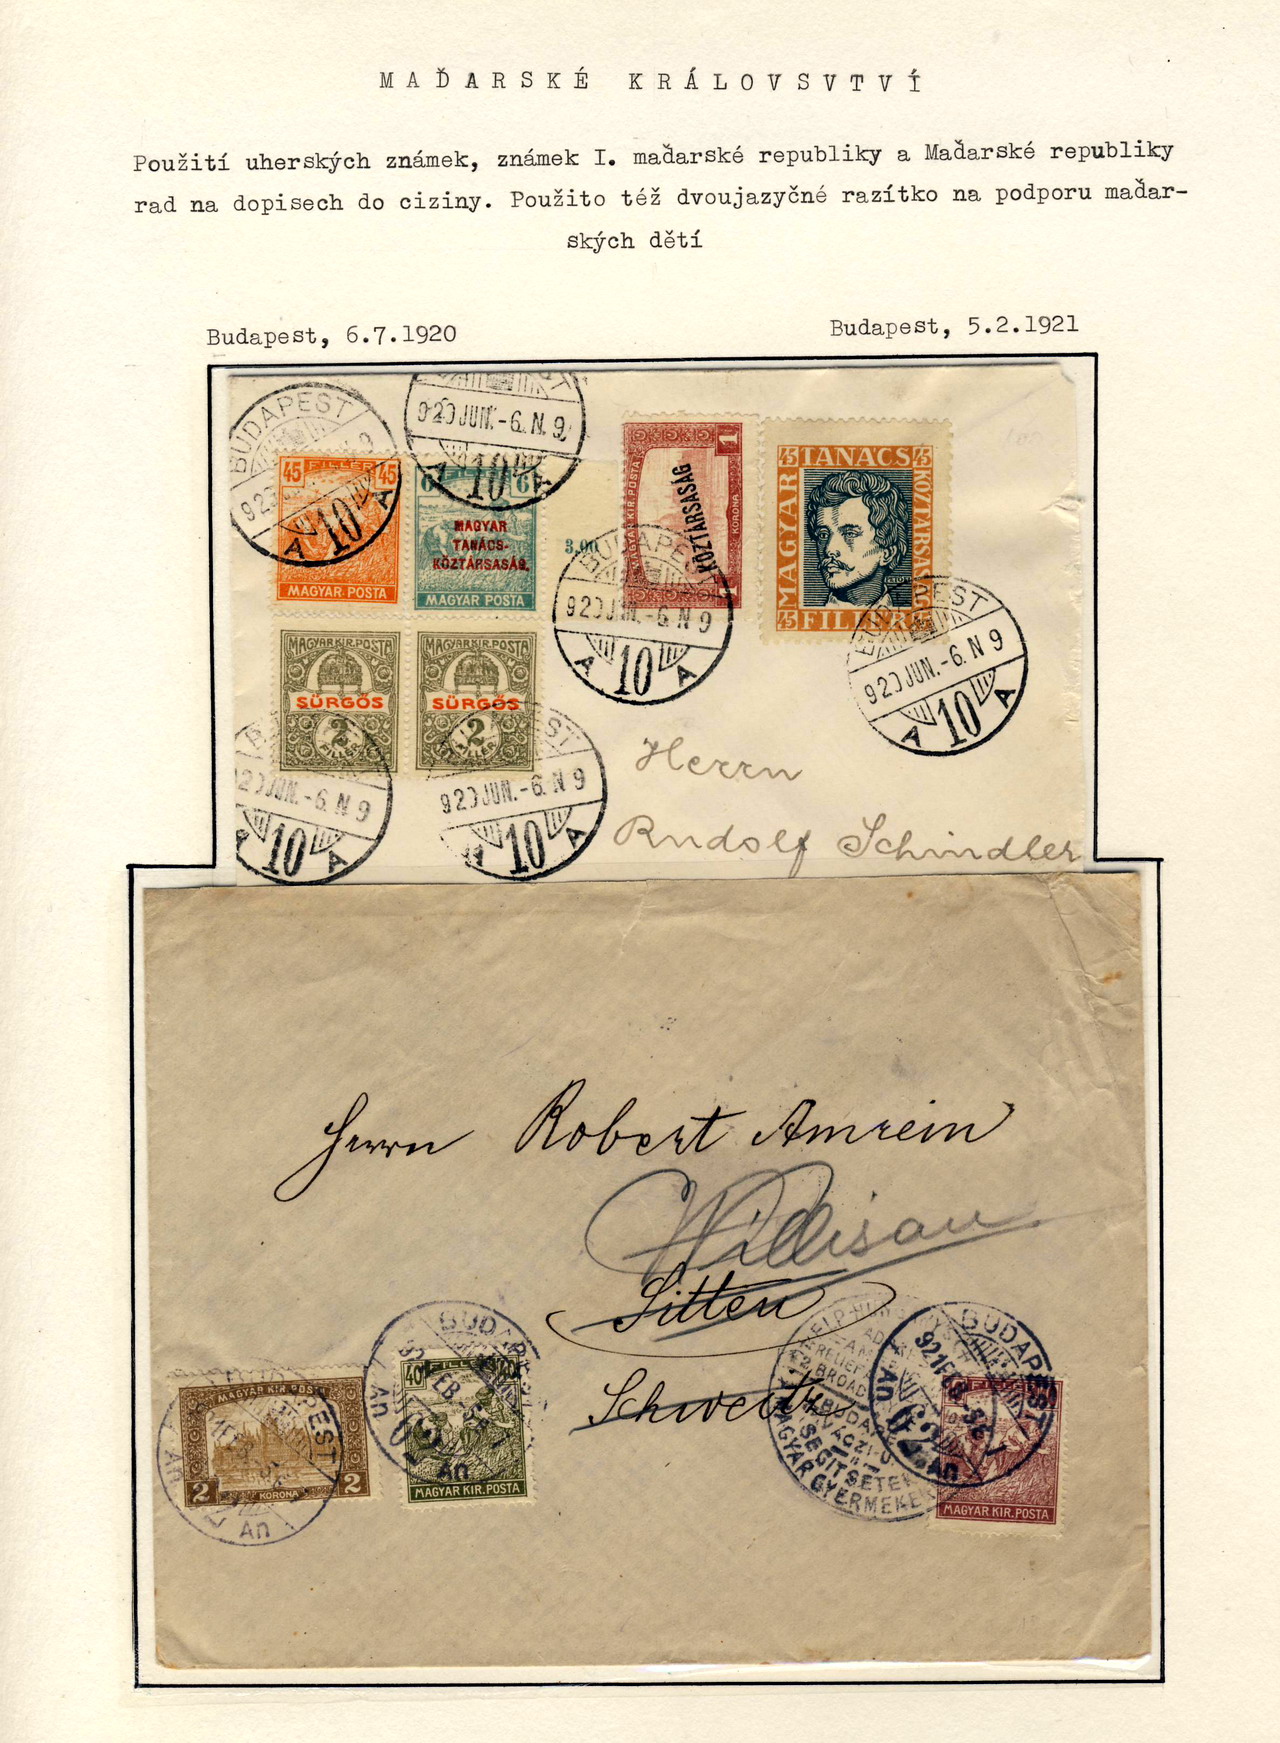 MAĎARSKÉ KRÁLOVSVTVÍ
Použití uherských známek, známek I. maďarské republiky a Maďarské republiky
rad na dopisech do ciziny. Použito též dvoujazyčné razítko na podporu maďar-
ských dětí
Budapest, 6.7.1920
Budapest, 5.2.1921
BUDAPEST
A 10 A
920 JUN.-6. N 9
A 10 A
45 FILLÉR 45
MAGYAR POSTA
MAGYAR
TANÁCS-
KÖZTÁRSASÁG.
MAGYAR POSTA
3,00
1
MAGYAR KIR. POSTA
KÖZTÁRSASÁG
KORONA
45 TANÁCS 45
MAGYAR
KÖZTÁRSASÁG
45 FILLÉR
BUDAPEST
920 JUN.-6. N 9
A 10 A
920 JUN.-6. N 9
A 10 A
MAGYAR KIR. POSTA
SÜRGŐS
2
FILLÉR
MAGYAR KIR. POSTA
SÜRGŐS
2
FILLÉR
920 JUN.-6. N 9
10 A
920 JUN.-6. N 9
10 A
Herrn
Rudolf Schindler
Herrn Robert Amrein
Willisau
Sitten
Schweitz
MAGYAR KIR. POSTA
2 KORONA 2
An
40 FILLÉR 40
MAGYAR KIR. POSTA
BUDAPEST
An
RELIEF
BROAD
BUDAP
VÁCZI-U
SEGITSETEK
MAGYAR GYERMEKEK
BUDAPEST
921 FEB
62
An
MAGYAR KIR. POSTA